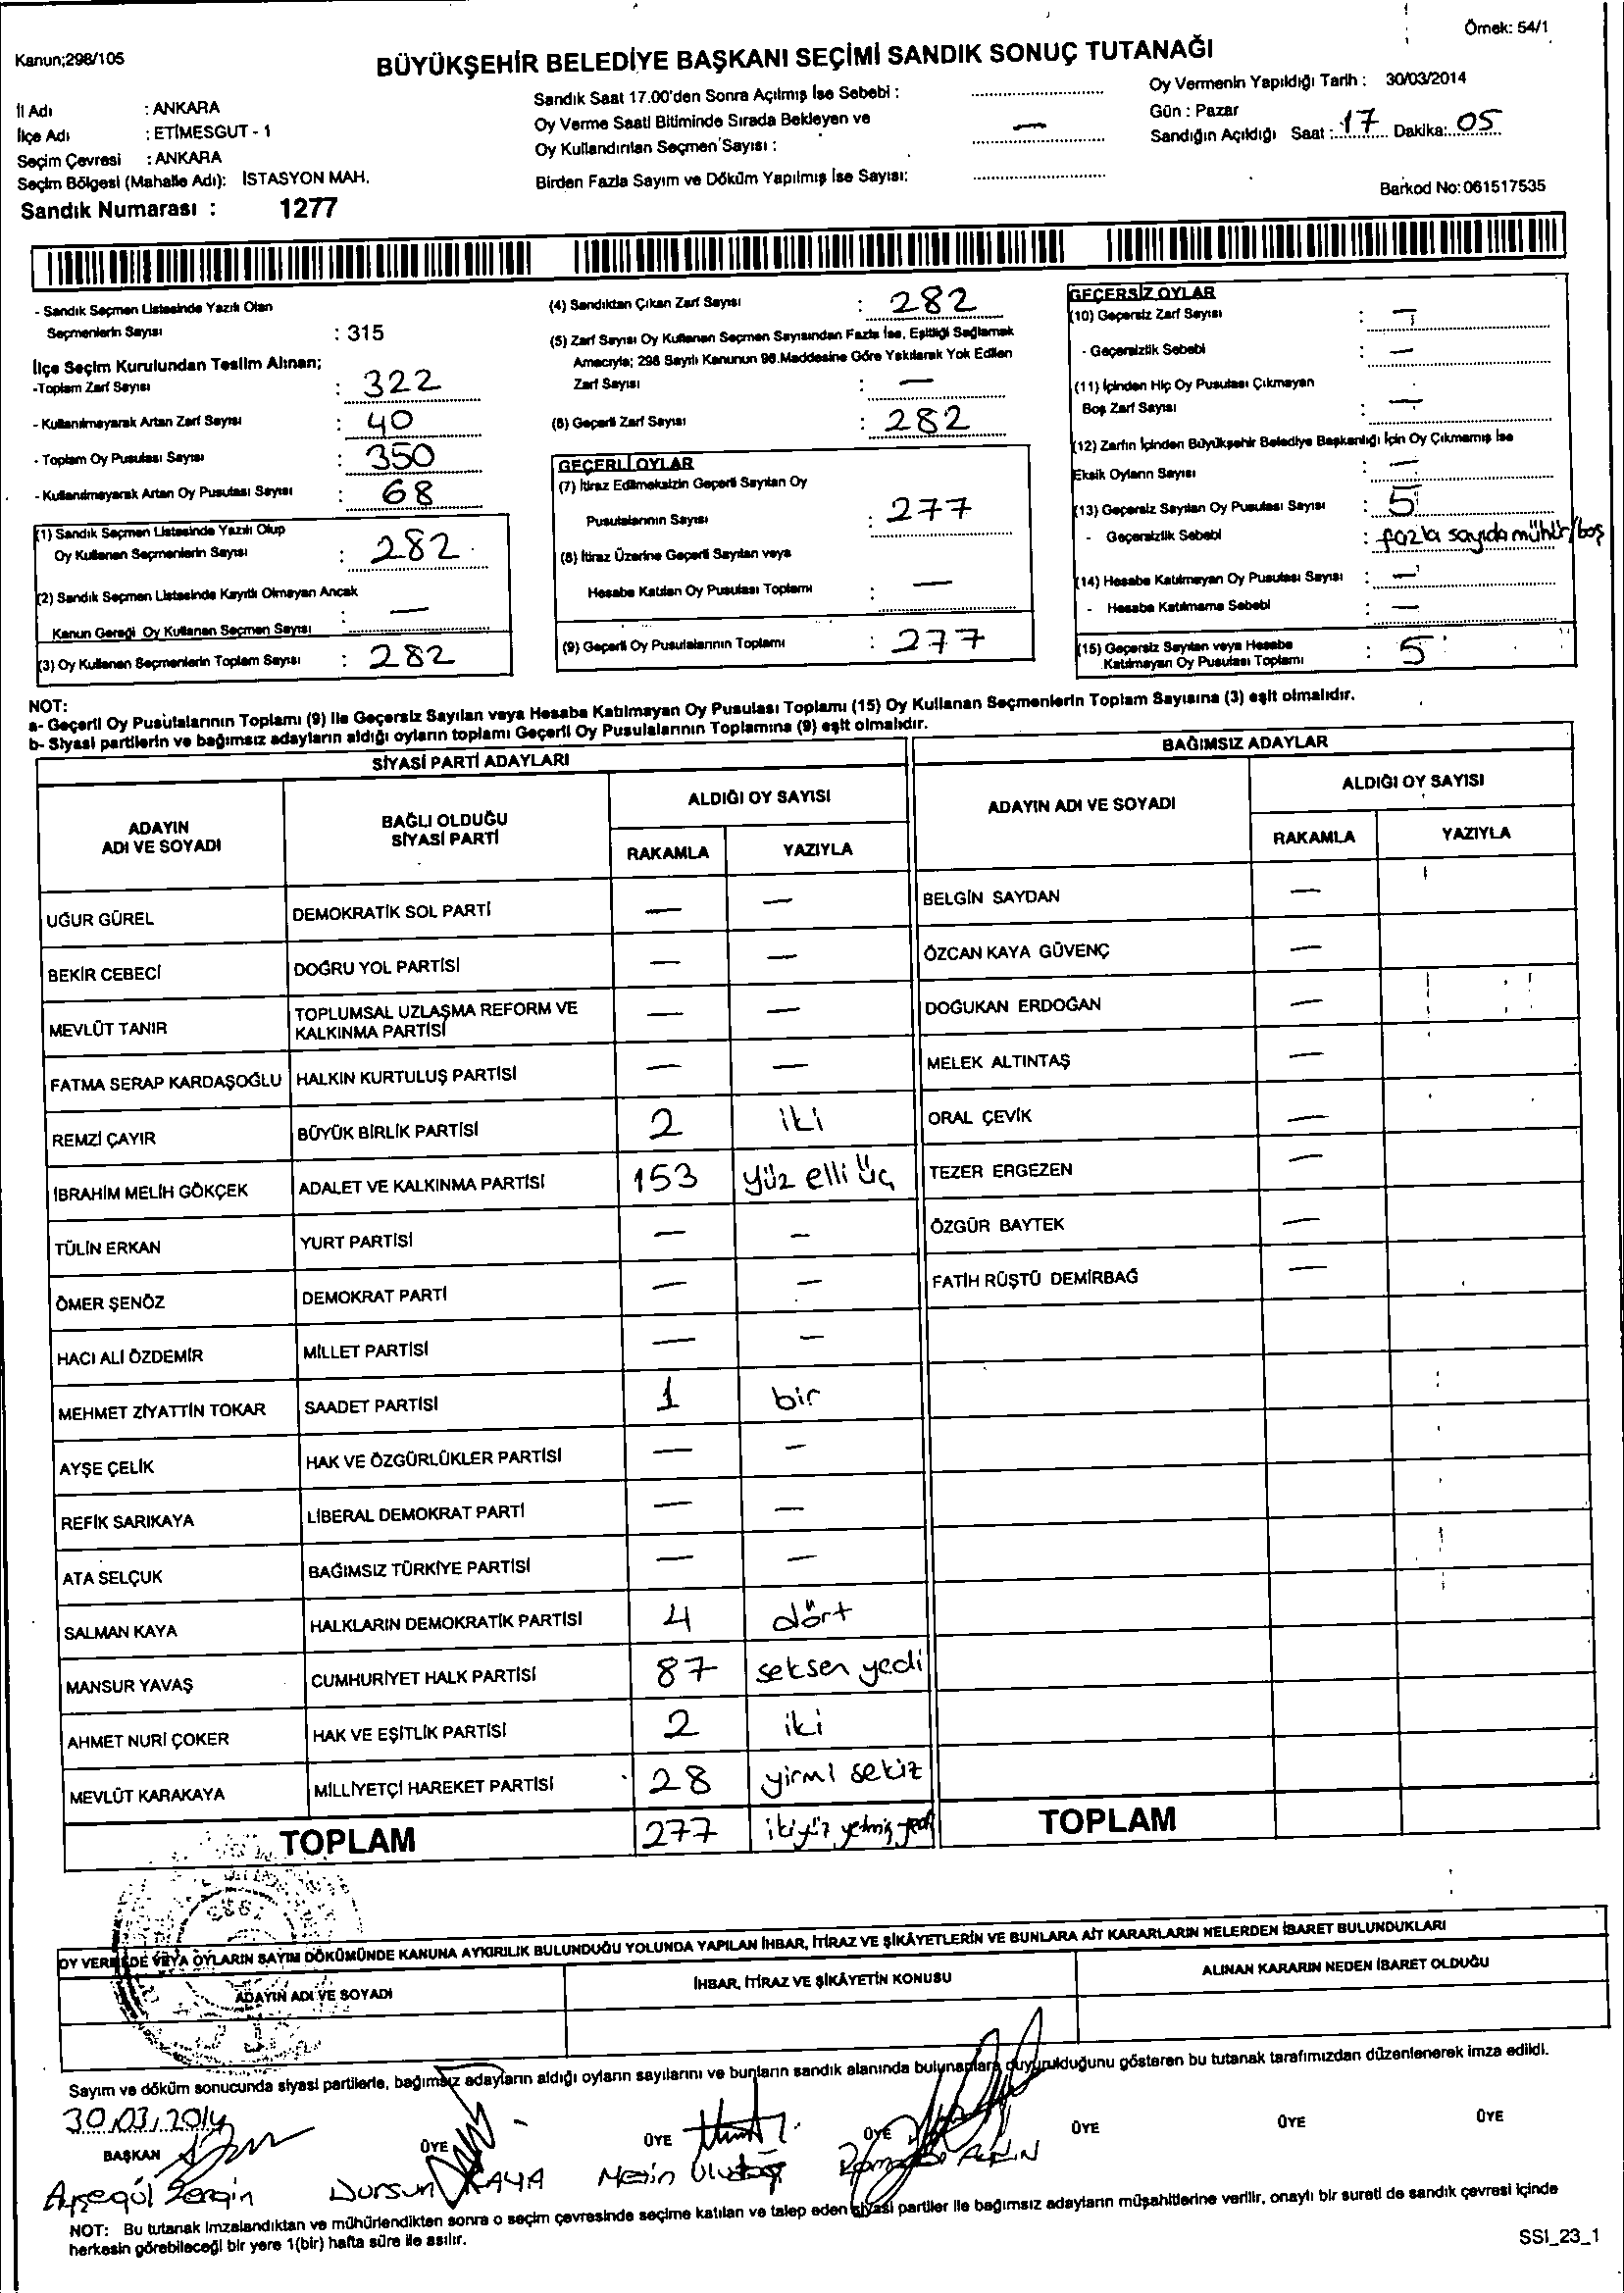 Örnek: 54/1
Kanun;298/105
BÜYÜKŞEHİR BELEDİYE BAŞKANI SEÇİMİ SANDIK SONUÇ TUTANAĞI
İl Adı : ANKARA
İlçe Adı : ETİMESGUT - 1
Seçim Çevresi : ANKARA
Seçim Bölgesi (Mahalle Adı): İSTASYON MAH.
Sandık Numarası : 1277
Sandık Saat 17.00'den Sonra Açılmış İse Sebebi :
Oy Verme Saati Bitiminde Sırada Bekleyen ve
Oy Kullandırılan Seçmen Sayısı : —
Birden Fazla Sayım ve Döküm Yapılmış İse Sayısı:
Oy Vermenin Yapıldığı Tarih : 30/03/2014
Gün : Pazar
Sandığın Açıldığı Saat : 17 Dakika: 05
Barkod No: 061517535
- Sandık Seçmen Listesinde Yazılı Olan
Seçmenlerin Sayısı : 315
İlçe Seçim Kurulundan Teslim Alınan;
-Toplam Zarf Sayısı : 322
- Kullanılmayarak Artan Zarf Sayısı : 40
- Toplam Oy Pusulası Sayısı : 350
- Kullanılmayarak Artan Oy Pusulası Sayısı : 68
(1) Sandık Seçmen Listesinde Yazılı Olup
Oy Kullanan Seçmenlerin Sayısı : 282
(2) Sandık Seçmen Listesinde Kayıtlı Olmayan Ancak
Kanun Gereği Oy Kullanan Seçmen Sayısı : —
(3) Oy Kullanan Seçmenlerin Toplam Sayısı : 282
(4) Sandıktan Çıkan Zarf Sayısı : 282
(5) Zarf Sayısı Oy Kullanan Seçmen Sayısından Fazla İse, Eşitliği Sağlamak
Amacıyla; 298 Sayılı Kanunun 98.Maddesine Göre Yakılarak Yok Edilen
Zarf Sayısı : —
(6) Geçerli Zarf Sayısı : 282
GEÇERLİ OYLAR
(7) İtiraz Edilmeksizin Geçerli Sayılan Oy
Pusulalarının Sayısı : 277
(8) İtiraz Üzerine Geçerli Sayılan veya
Hesaba Katılan Oy Pusulası Toplamı : —
(9) Geçerli Oy Pusulalarının Toplamı : 277
GEÇERSİZ OYLAR
(10) Geçersiz Zarf Sayısı : —
- Geçersizlik Sebebi : —
(11) İçinden Hiç Oy Pusulası Çıkmayan
Boş Zarf Sayısı : —
(12) Zarfın İçinden Büyükşehir Belediye Başkanlığı İçin Oy Çıkmamış İse
Eksik Oyların Sayısı : —
(13) Geçersiz Sayılan Oy Pusulası Sayısı : 5
- Geçersizlik Sebebi : fazla sayıda mühür/boş
(14) Hesaba Katılmayan Oy Pusulası Sayısı : —
- Hesaba Katılmama Sebebi : —
(15) Geçersiz Sayılan veya Hesaba
Katılmayan Oy Pusulası Toplamı : 5
NOT:
a- Geçerli Oy Pusulalarının Toplamı (9) ile Geçersiz Sayılan veya Hesaba Katılmayan Oy Pusulası Toplamı (15) Oy Kullanan Seçmenlerin Toplam Sayısına (3) eşit olmalıdır.
b- Siyasi partilerin ve bağımsız adayların aldığı oyların toplamı Geçerli Oy Pusulalarının Toplamına (9) eşit olmalıdır.
SİYASİ PARTİ ADAYLARI
ADAYIN ADI VE SOYADI BAĞLI OLDUĞU SİYASİ PARTİ ALDIĞI OY SAYISI
RAKAMLA YAZIYLA
UĞUR GÜREL DEMOKRATİK SOL PARTİ — —
BEKİR CEBECİ DOĞRU YOL PARTİSİ — —
MEVLÜT TANIR TOPLUMSAL UZLAŞMA REFORM VE KALKINMA PARTİSİ — —
FATMA SERAP KARDAŞOĞLU HALKIN KURTULUŞ PARTİSİ — —
REMZİ ÇAYIR BÜYÜK BİRLİK PARTİSİ 2 iki
İBRAHİM MELİH GÖKÇEK ADALET VE KALKINMA PARTİSİ 153 yüz elli üç
TÜLİN ERKAN YURT PARTİSİ — —
ÖMER ŞENÖZ DEMOKRAT PARTİ — —
HACI ALİ ÖZDEMİR MİLLET PARTİSİ — —
MEHMET ZİYATTİN TOKAR SAADET PARTİSİ 1 bir
AYŞE ÇELİK HAK VE ÖZGÜRLÜKLER PARTİSİ — —
REFİK SARIKAYA LİBERAL DEMOKRAT PARTİ — —
ATA SELÇUK BAĞIMSIZ TÜRKİYE PARTİSİ — —
SALMAN KAYA HALKLARIN DEMOKRATİK PARTİSİ 4 dört
MANSUR YAVAŞ CUMHURİYET HALK PARTİSİ 87 seksen yedi
AHMET NURİ ÇOKER HAK VE EŞİTLİK PARTİSİ 2 iki
MEVLÜT KARAKAYA MİLLİYETÇİ HAREKET PARTİSİ 28 yirmi sekiz
TOPLAM 277 ikiyüz yetmiş yedi
BAĞIMSIZ ADAYLAR
ADAYIN ADI VE SOYADI ALDIĞI OY SAYISI
RAKAMLA YAZIYLA
BELGİN SAYDAN —
ÖZCAN KAYA GÜVENÇ —
DOĞUKAN ERDOĞAN —
MELEK ALTINTAŞ —
ORAL ÇEVİK —
TEZER ERGEZEN —
ÖZGÜR BAYTEK —
FATİH RÜŞTÜ DEMİRBAĞ —
TOPLAM
OY VERMEDE VEYA OYLARIN SAYIM DÖKÜMÜNDE KANUNA AYKIRILIK BULUNDUĞU YOLUNDA YAPILAN İHBAR, İTİRAZ VE ŞİKÂYETLERİN VE BUNLARA AİT KARARLARIN NELERDEN İBARET BULUNDUKLARI
ADAYIN ADI VE SOYADI İHBAR, İTİRAZ VE ŞİKÂYETİN KONUSU ALINAN KARARIN NEDEN İBARET OLDUĞU
Sayım ve döküm sonucunda siyasi partilerle, bağımsız adayların aldığı oyların sayılarını ve bunların sandık alanında bulunanlara duyurulduğunu gösteren bu tutanak tarafımızdan düzenlenerek imza edildi.
30.03.2014
BAŞKAN ÜYE ÜYE ÜYE ÜYE ÜYE ÜYE
Ayşegül Dursun KAYA Metin Uludağ
NOT: Bu tutanak imzalandıktan ve mühürlendikten sonra o seçim çevresinde seçime katılan ve talep eden siyasi partiler ile bağımsız adayların müşahitlerine verilir, onaylı bir sureti de sandık çevresi içinde
herkesin görebileceği bir yere 1(bir) hafta süre ile asılır.
SSI_23_1